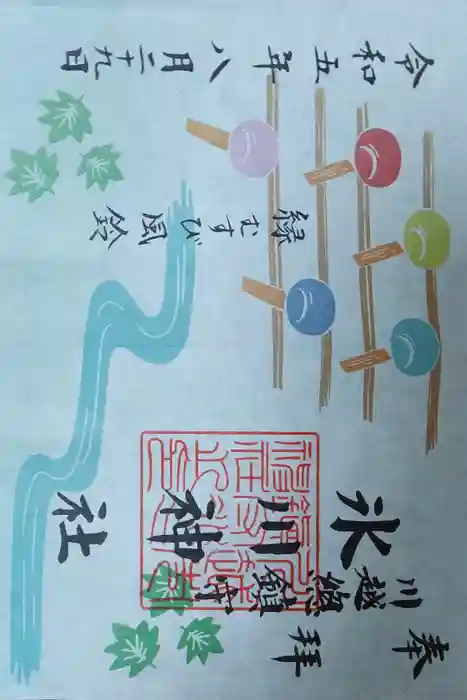 奉拝
川越總鎮守
氷川神社
縁むすび風鈴
令和五年八月二十九日